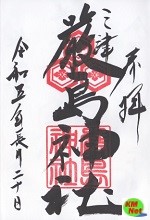 奉拝
三津
厳島神社
令和五年長月二十日
KM
Net